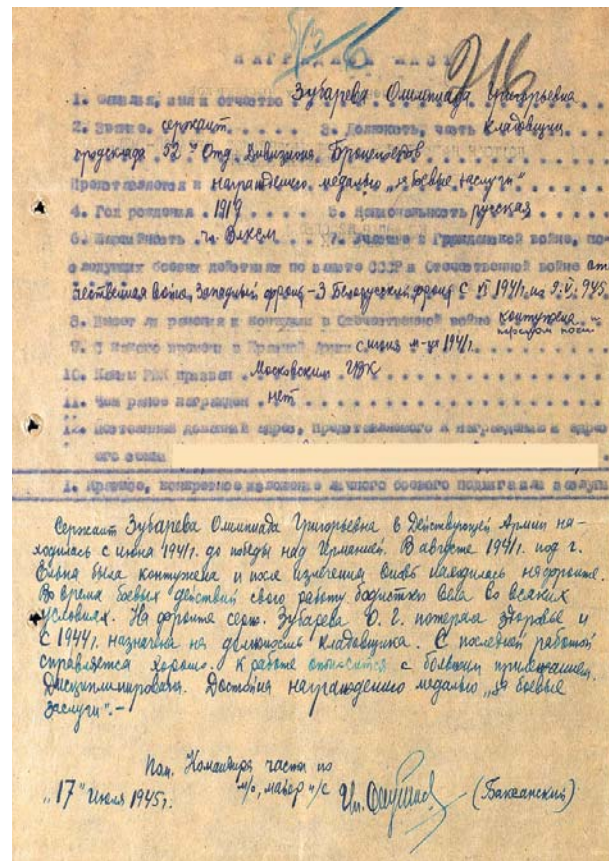 5/3 6
216
НАГРАДНОЙ ЛИСТ
1. Фамилия, имя и отчество Зубарева Олимпиада Григорьевна
2. Звание. сержант. 3. Должность, часть кладовщик
продсклада 52го Отд. Дивизиона Бронепоездов
Представляется к награждению медалью „за боевые заслуги"
4. Год рождения. 1919 5. Национальность русская
6. Партийность. чл. ВЛКСМ 7. Участие в Гражданской войне, по-
следующих боевых действиях по защите СССР и Отечественной войне оте-
чественная война, Западный фронт - 3 Белорусский фронт с VI 1941г. на 9.V.945.
8. Имеет ли ранения и контузии в Отечественной войне контужена и
перелом ноги
9. С какого времени в Красной Армии с июня м-ца 1941г.
10. Каким РВК призван Московским ГВК
11. Чем ранее награжден. нет
12. Постоянный домашний адрес, представляемого к награждению и адрес
его семьи
1. Краткое, конкретное изложение личного боевого подвига или заслуг
Сержант Зубарева Олимпиада Григорьевна в Действующей Армии на-
ходилась с июня 1941г. до победы над Германией. В августе 1941г. под г.
Ельня была контужена и после излечения вновь находилась на фронте.
Во время боевых действий свою работу вела во всяких
условиях. На фронте серж. Зубарева О. Г. потеряла здоровье и
с 1944г. назначена на должность кладовщика. С последней работой
справляется хорошо. к работе относится с большим прилежанием.
Дисциплинирована. Достойна награждению медалью „за боевые
заслуги".-
Пом. Командира части по
м/о, майор и/с (Баксанский)
„17" июля 1945г.